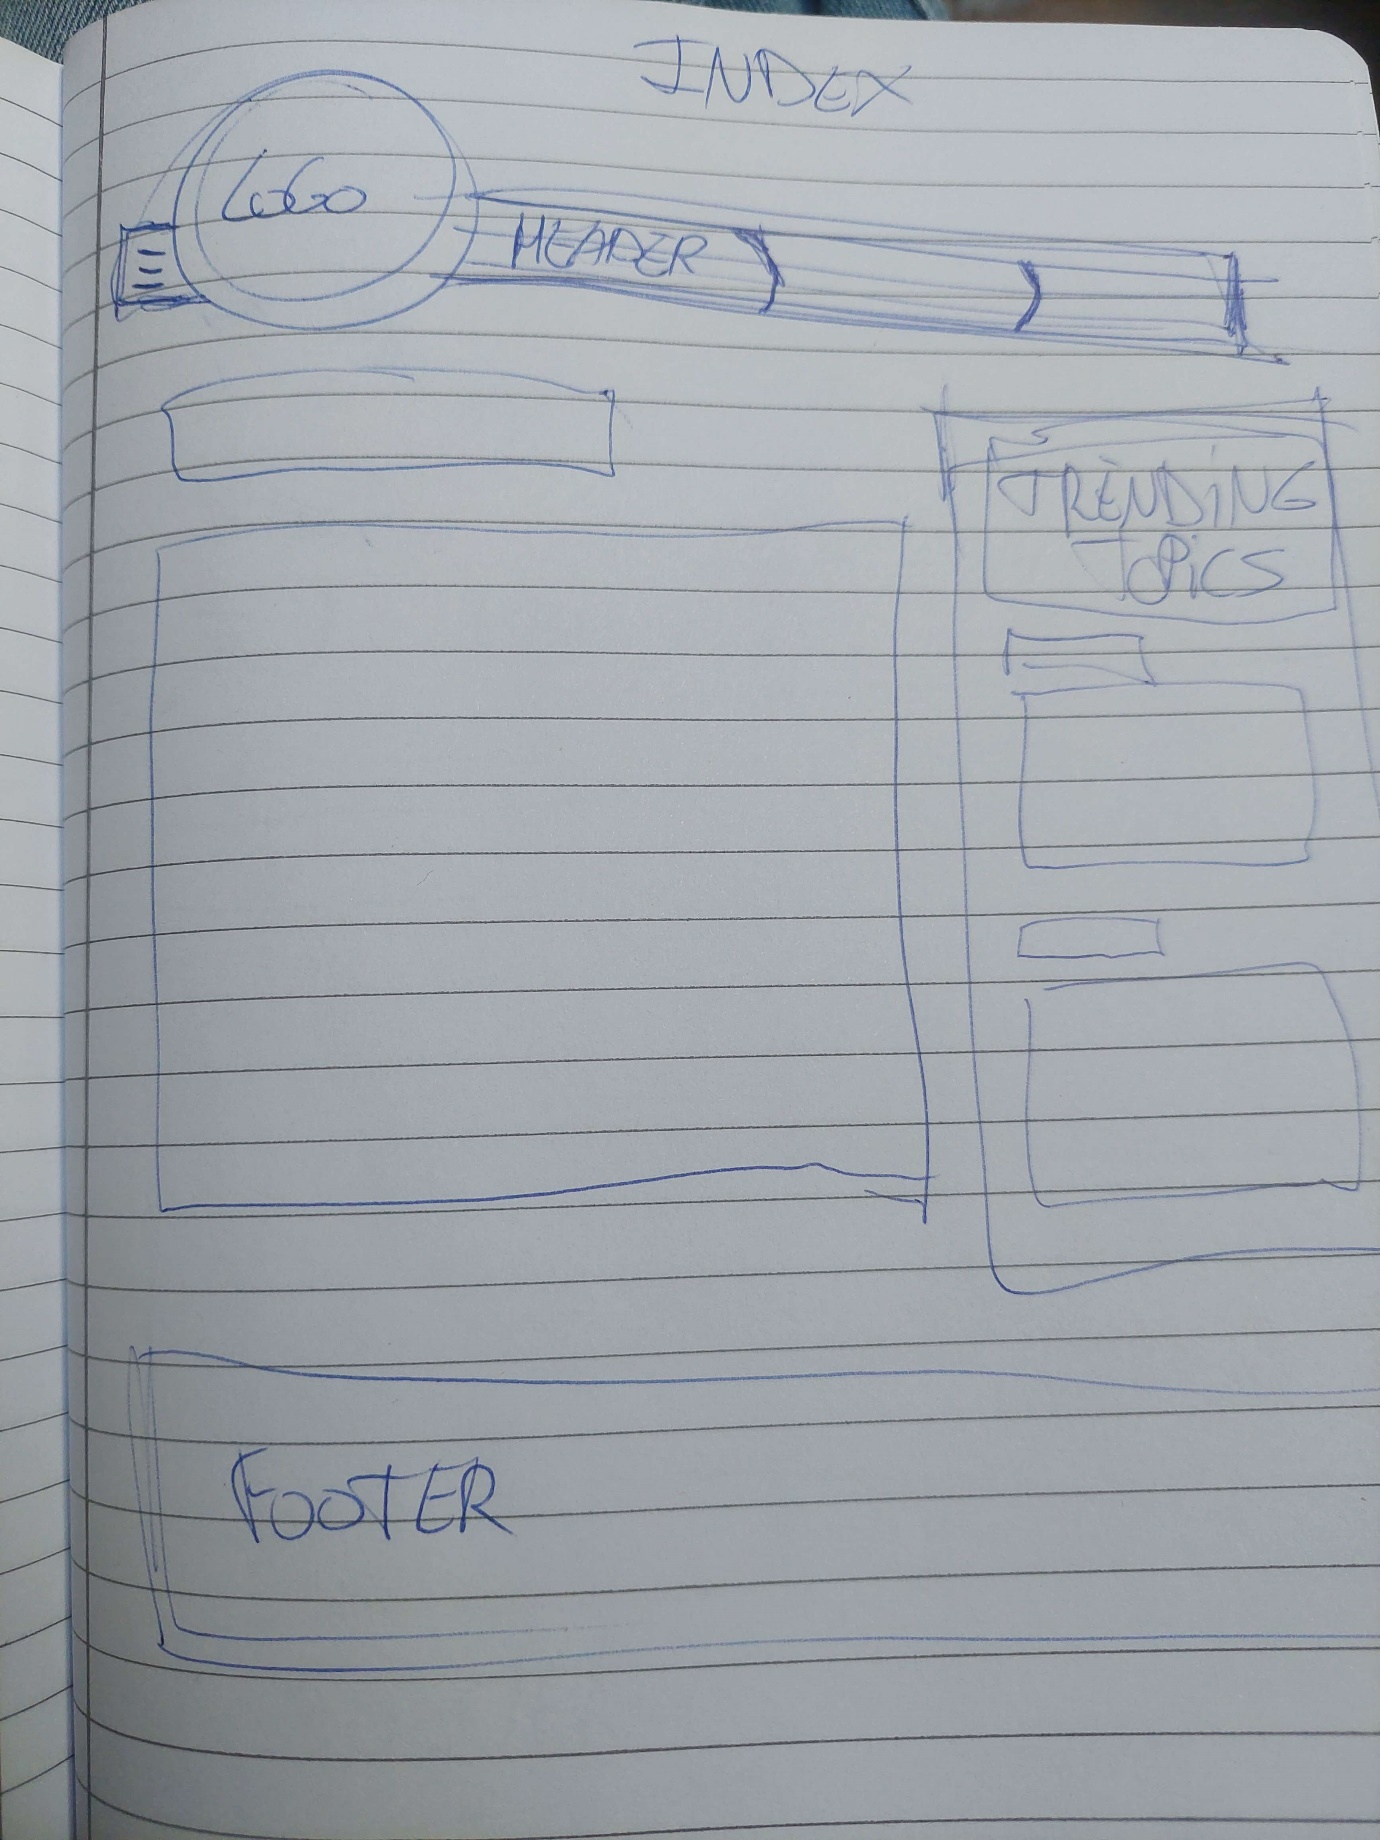 INDEX
LOGO
HEADER
TRENDING
TOPICS
FOOTER